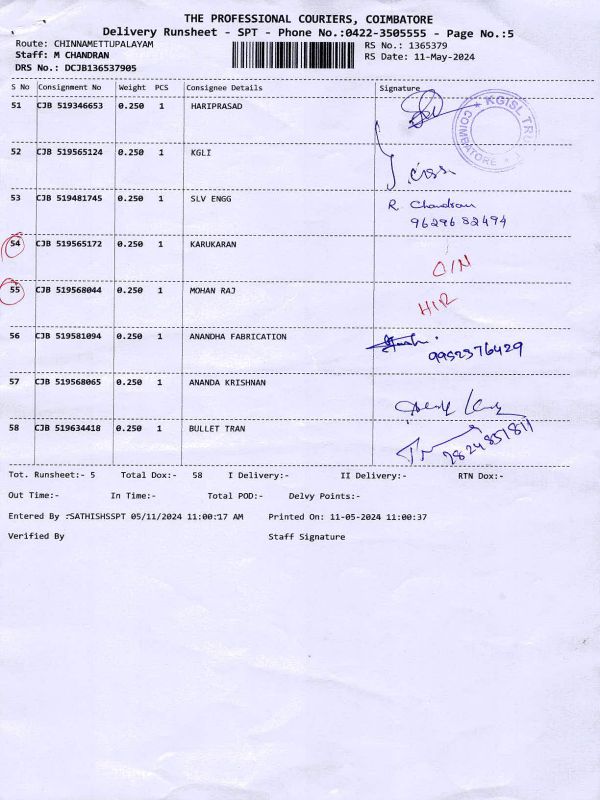 THE PROFESSIONAL COURIERS, COIMBATORE
Delivery Runsheet - SPT - Phone No.:0422-3505555 - Page No.:5
Route: CHINNAMETTUPALAYAM RS No.: 1365379
Staff: M CHANDRAN RS Date: 11-May-2024
DRS No.: DCJB136537905
S No Consignment No Weight PCS Consignee Details Signature
51 CJB 519346653 0.250 1 HARIPRASAD
KGISL TRU
COIMBATORE
52 CJB 519565124 0.250 1 KGLI
53 CJB 519481745 0.250 1 SLV ENGG R. Chandran
9629682494
54 CJB 519565172 0.250 1 KARUKARAN O/N
55 CJB 519568044 0.250 1 MOHAN RAJ HIR
56 CJB 519581094 0.250 1 ANANDHA FABRICATION
9952376429
57 CJB 519568065 0.250 1 ANANDA KRISHNAN
58 CJB 519634418 0.250 1 BULLET TRAN
7824851811
Tot. Runsheet:- 5 Total Dox:- 58 I Delivery:- II Delivery:- RTN Dox:-
Out Time:- In Time:- Total POD:- Delvy Points:-
Entered By :SATHISHSSPT 05/11/2024 11:00:17 AM Printed On: 11-05-2024 11:00:37
Verified By Staff Signature